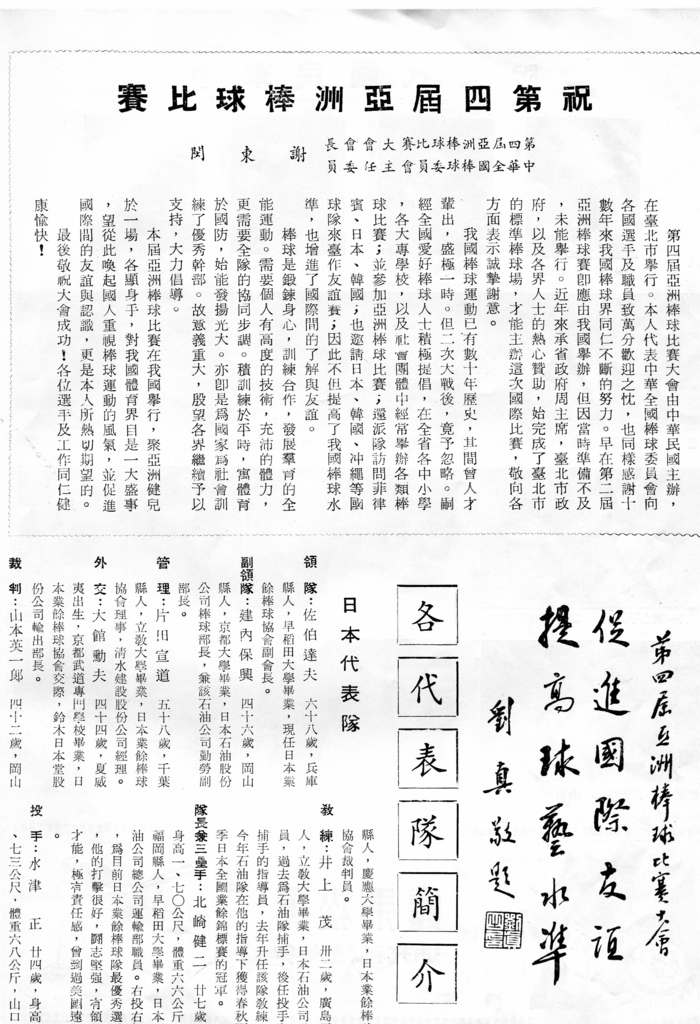 祝第四屆亞洲棒球比賽
第四屆亞洲棒球比賽大會會長
中華全國棒球委員會主任委員
謝東閔
第四屆亞洲棒球比賽大會由中華民國主辦，
在臺北市舉行。本人代表中華全國棒球委員會向
各國選手及職員致萬分歡迎之忱，也同樣感謝十
數年來我國棒球界同仁不斷的努力。早在第二屆
亞洲棒球賽卽應由我國舉辦，但因當時準備不及
，未能舉行。近年來承省政府周主席，臺北市政
府，以及各界人士的熱心贊助，始完成了臺北市
的標準棒球場，才能主辦這次國際比賽，敬向各
方面表示誠摯謝意。
我國棒球運動已有數十年歷史，其間曾人才
輩出，盛極一時。但二次大戰後，竟予忽略。嗣
經全國愛好棒球人士積極提倡，在全省各中小學
，各大專學校，以及社會團體中經常舉辦各類棒
球比賽；並參加亞洲棒球比賽；還派隊訪問菲律
賓、日本、韓國；也邀請日本、韓國、冲繩等國
球隊來臺作友誼賽；因此不但提高了我國棒球水
準，也增進了國際間的了解與友誼。
棒球是鍛鍊身心，訓練合作，發展羣育的全
能運動。需要個人有高度的技術，充沛的體力，
更需要全隊的協同步調。積訓練於平時，寓體育
於國防，始能發揚光大。亦卽是爲國家爲社會訓
練了優秀幹部。故意義重大，殷望各界繼續予以
支持，大力倡導。
本屆亞洲棒球比賽在我國舉行，聚亞洲健兒
於一場，各顯身手，對我國體育界目是一大盛事
，望從此喚起國人重視棒球運動的風氣，並促進
國際間的友誼與認識，更是本人所熱切期望的。
最後敬祝大會成功！各位選手及工作同仁健
康愉快！
第四屆亞洲棒球比賽大會
促進國際友誼
提高球藝水準
劉真敬題
各代表隊簡介
日本代表隊
領隊：佐伯達夫　六十八歲，兵庫
縣人，早稻田大學畢業，現任日本業
餘棒球協會副會長。
副領隊：建內保興　四十六歲，岡山
縣人，京都大學畢業，日本石油股份
公司棒球部長，兼該石油公司勤勞副
部長。
管理：片田宣道　五十八歲，千葉
縣人，立教大學畢業，日本業餘棒球
協會理事，清水建設股份公司經理。
外交：大館勳夫　四十四歲，夏威
夷出生，京都武道專門學校畢業，日
本業餘棒球協會交際，鈴木日本堂股
份公司輸出部長。
裁判：山本英一郎　四十二歲，岡山
縣人，慶應大學畢業，日本業餘棒球
協會裁判員。
教練：井上茂　卅二歲，廣島
人，立敎大學畢業，日本石油公司
員，過去爲石油隊捕手，後任投手
捕手的指導員，去年升任該隊教練
今年石油隊在他的指導下獲得春秋
季日本全國業餘錦標賽的冠軍。
隊長兼三壘手：北崎健二　廿七歲
身高一、七〇公尺，體重六六公斤
福岡縣人，早稻田大學畢業，日本
油公司總公司運輸部職員。右投右
，爲目前日本業餘棒球隊最優秀選
，他的打擊很好，鬪志堅强，有領
才能，極富責任感，曾到過美國遠
。
投手：水津正　廿四歲，身高
、七三公尺，體重六八公斤，山口